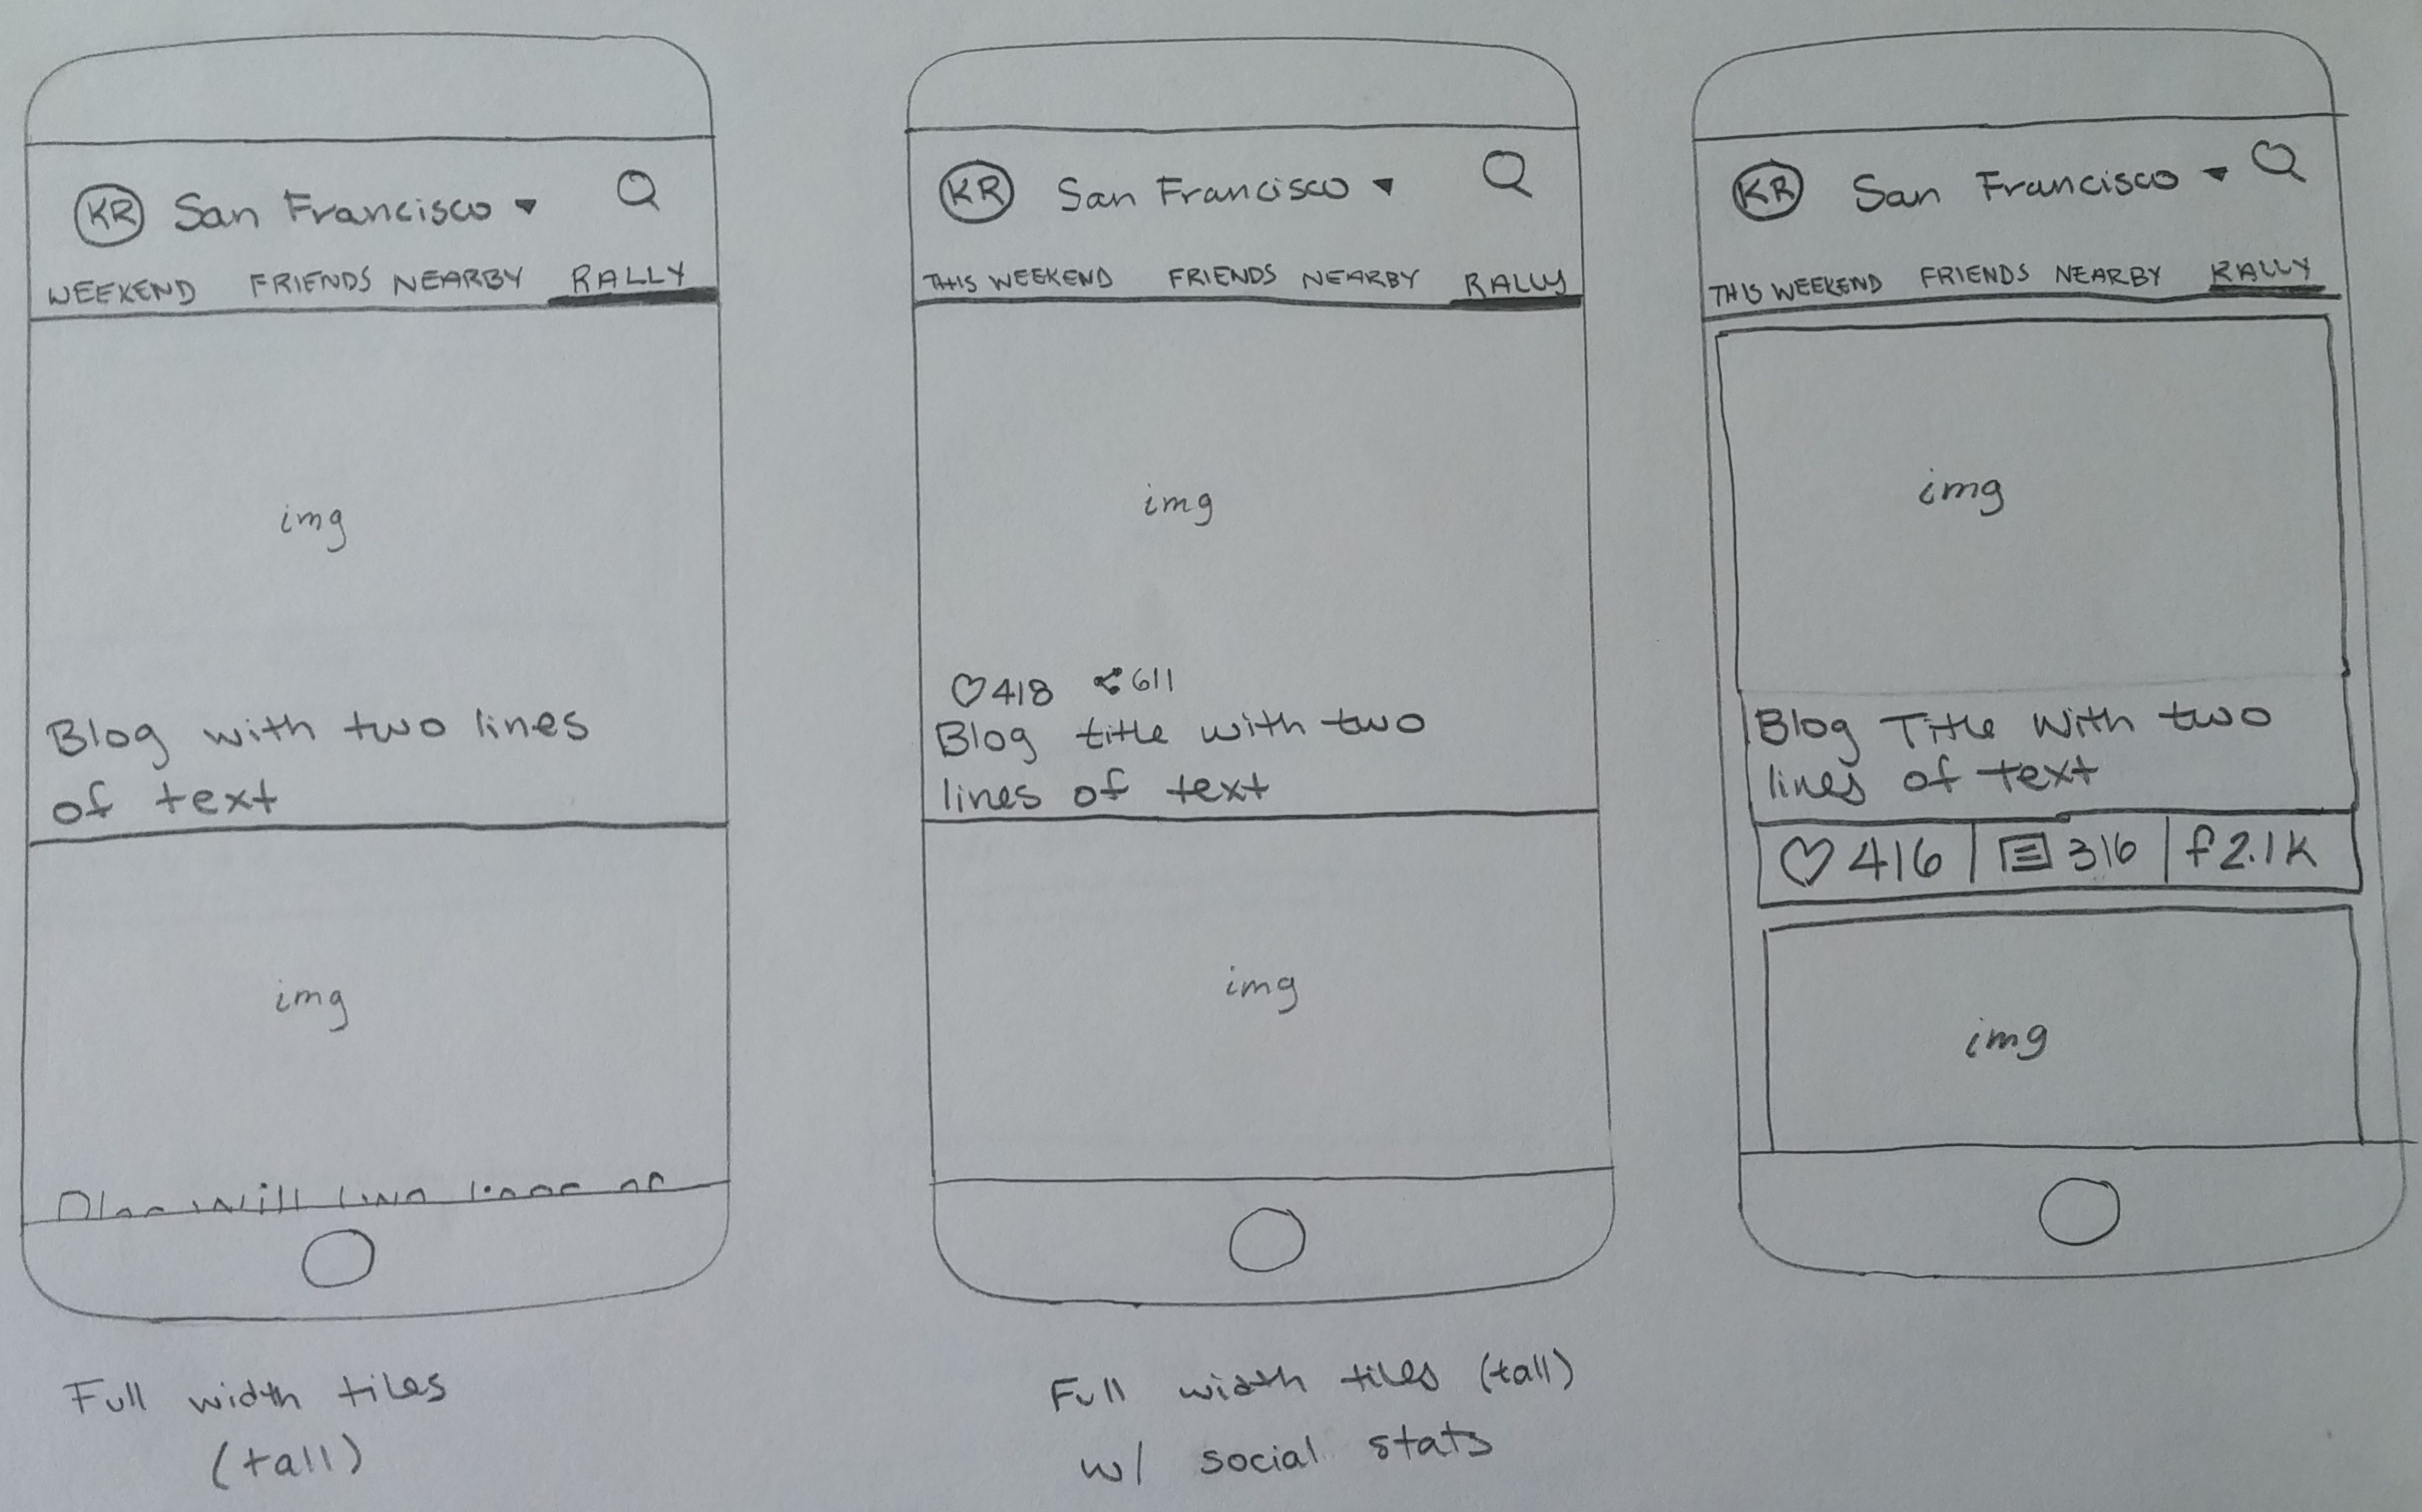 KR San Francisco
WEEKEND FRIENDS NEARBY RALLY
img
Blog with two lines
of text
img
Full width tiles
(tall)
KR San Francisco
THIS WEEKEND FRIENDS NEARBY RALLY
img
418 611
Blog title with two
lines of text
img
Full width tiles (tall)
w/ social stats
KR San Francisco
THIS WEEKEND FRIENDS NEARBY RALLY
img
Blog Title With two
lines of text
416 316 f 2.1K
img